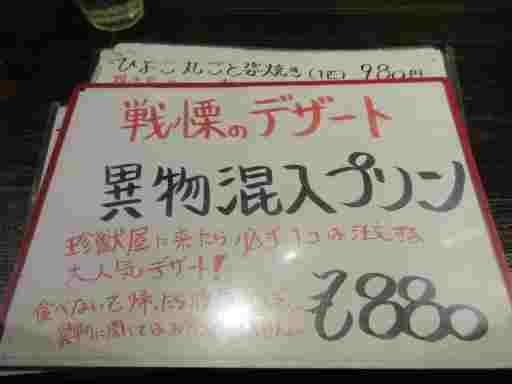 ひよこ丸ごと姿焼き(1匹) 980円
戦慄のデザート
異物混入プリン
珍獣屋に来たら必ず1コは注文する
大人気デザート!
食べないで帰ったら
¥880